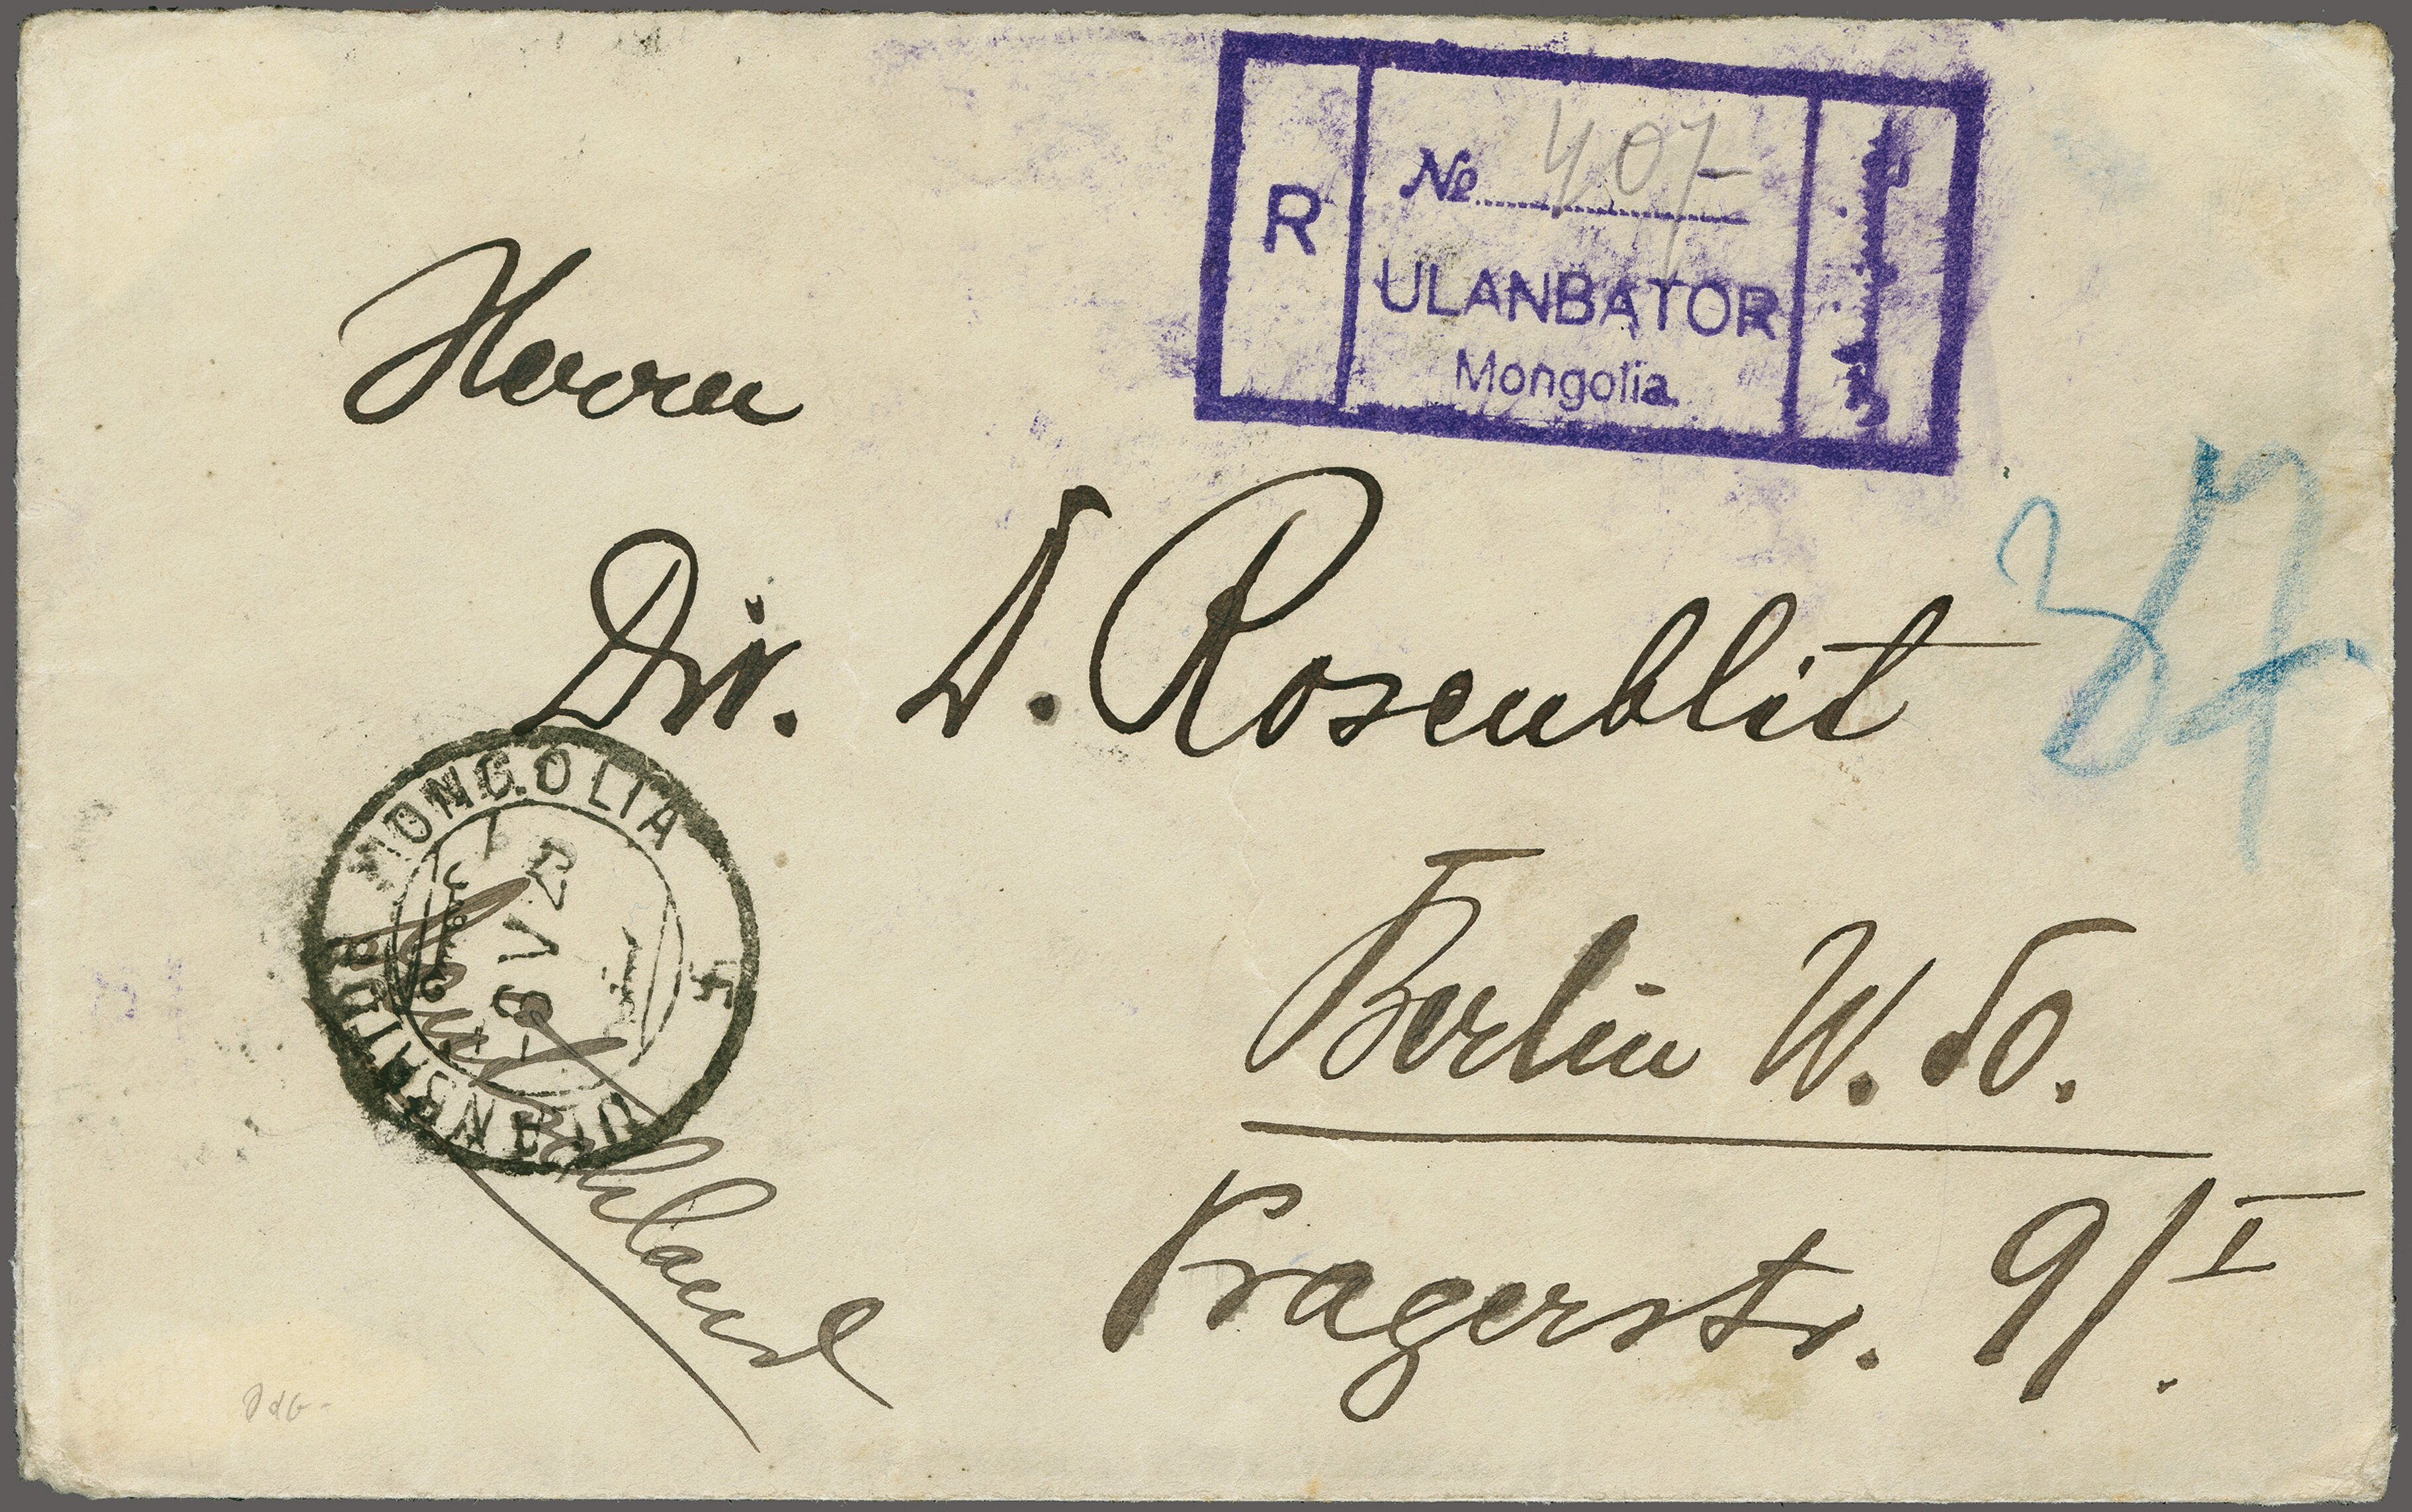 R
№ 407
ULANBATOR
Mongolia.
Herrn
Dir. D. Rosenblit
37
MONGOLIA
ULANBATOR
Berlin W. 50.
Pragerstr. 9/I.
Deutschland